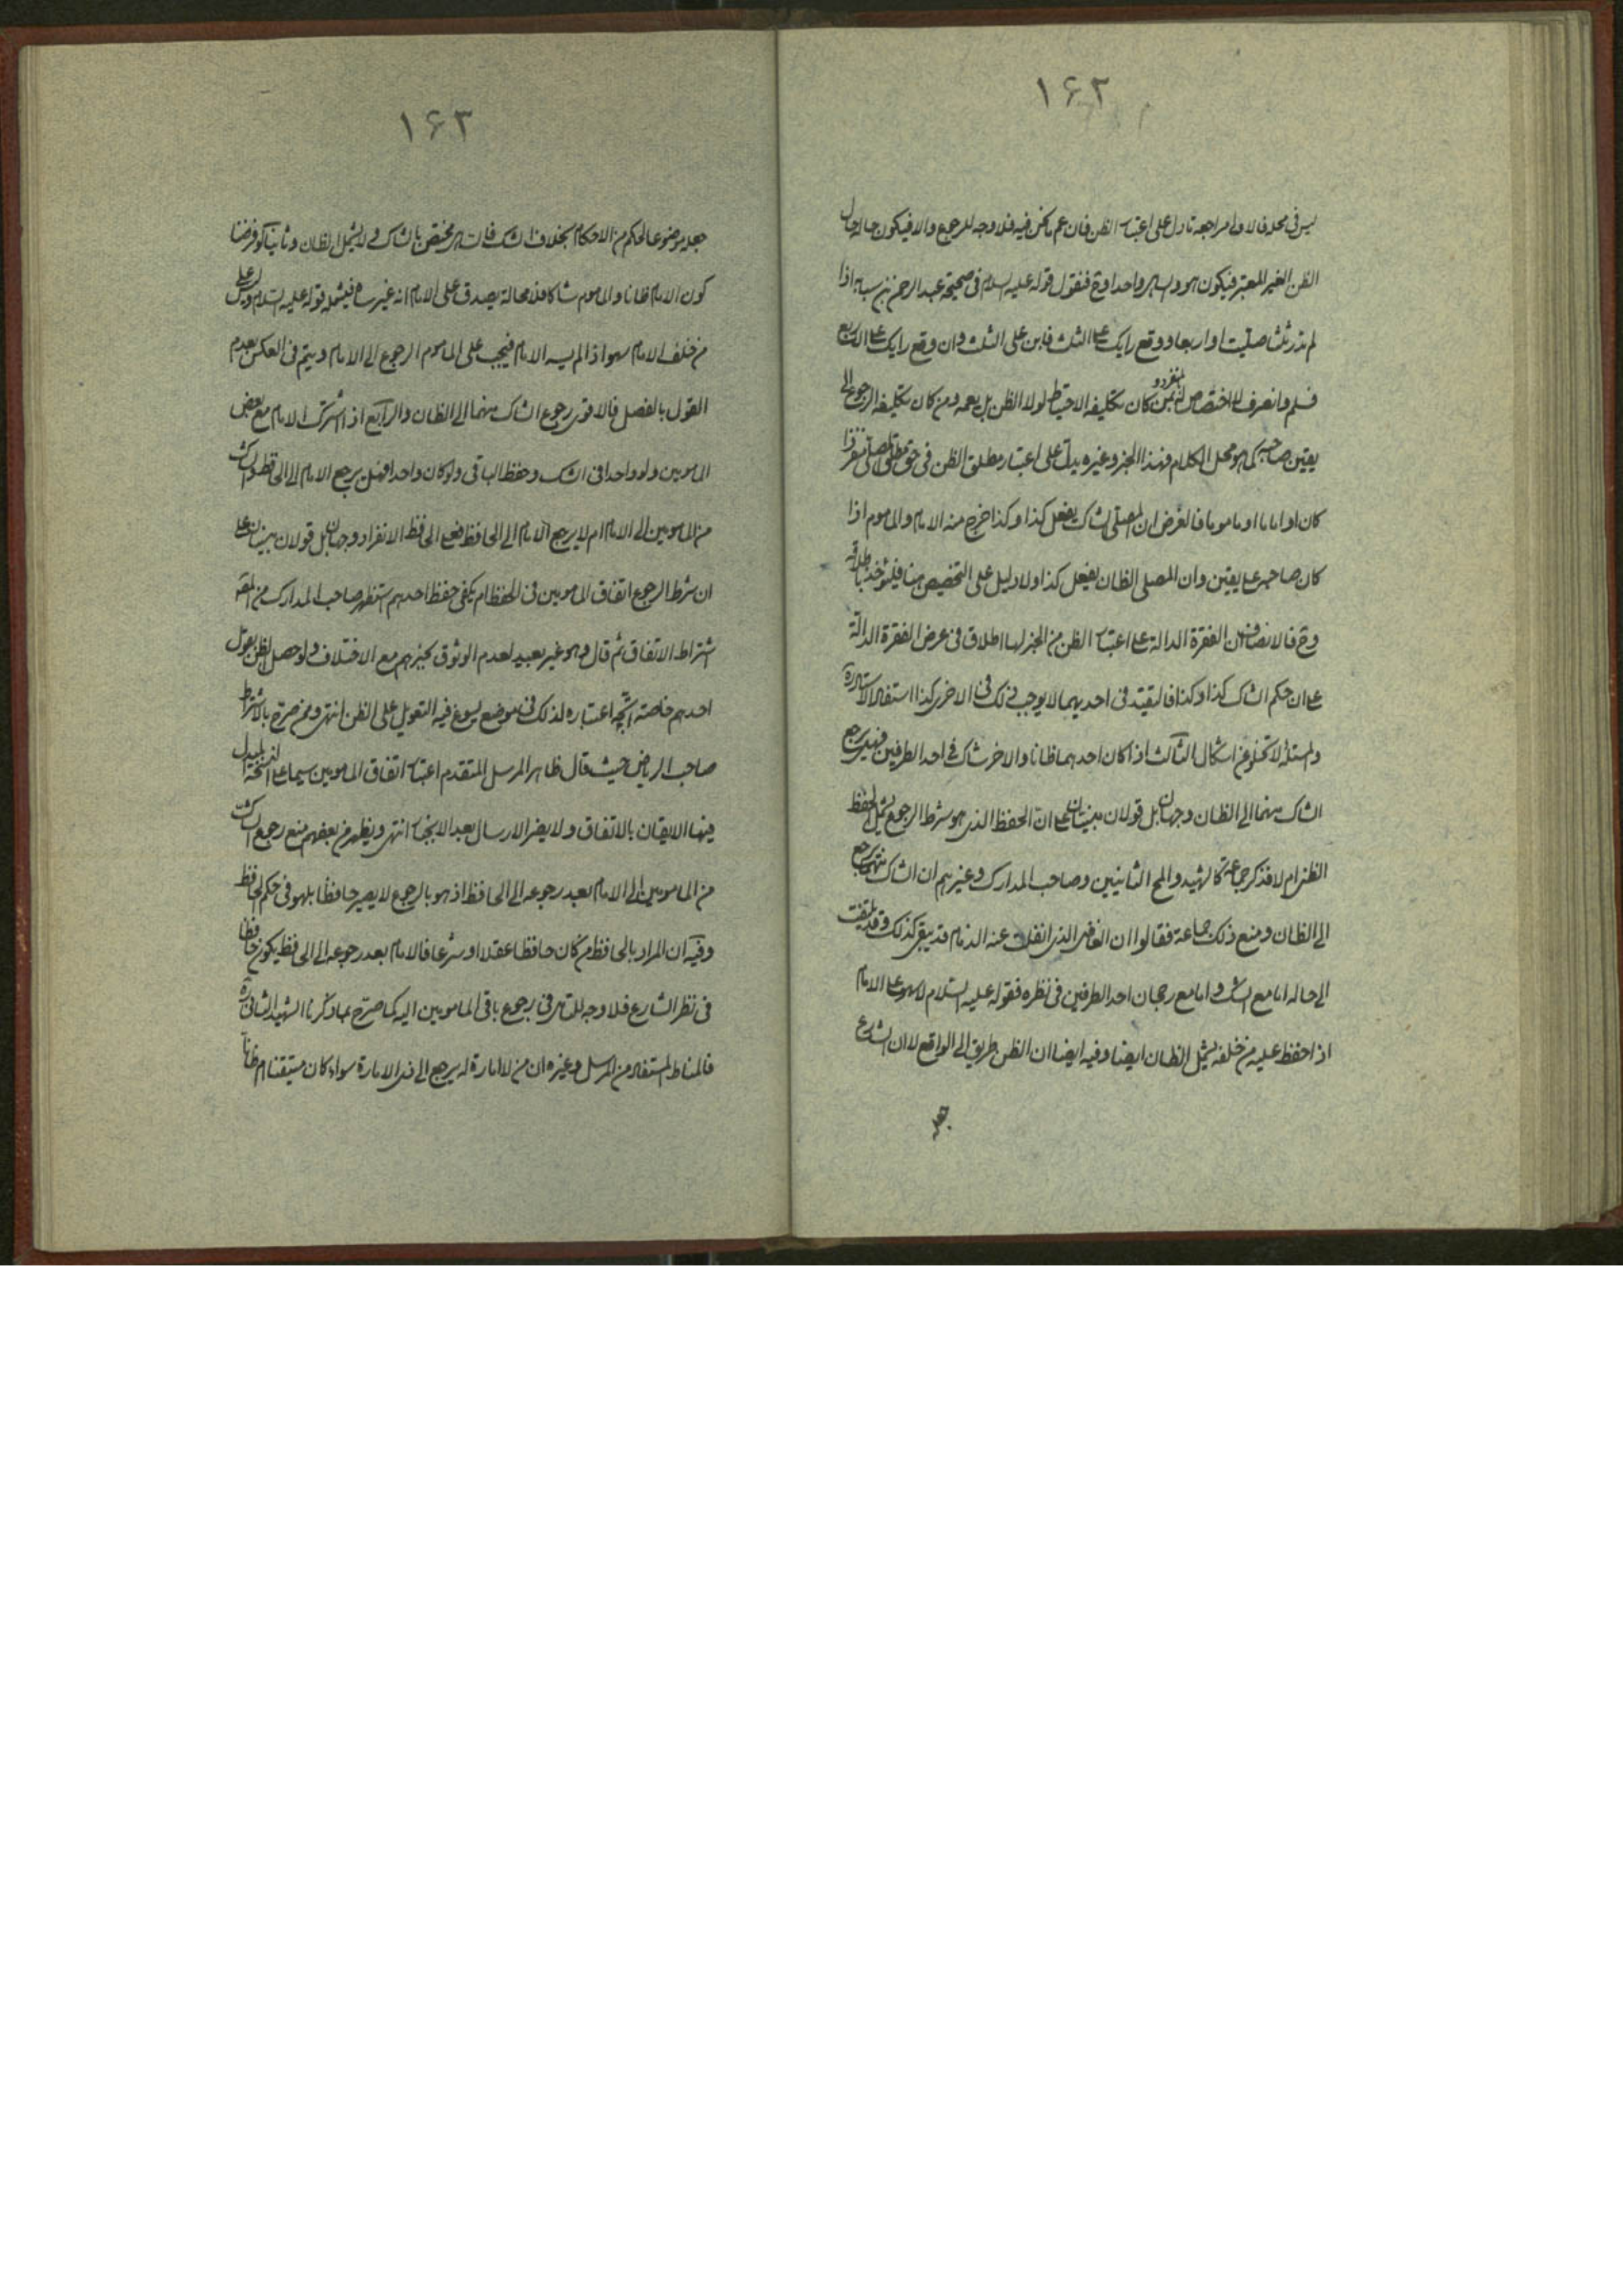 ١٦٢
ليس في محله فالاولى مراجعة ما دل على اعتبار الظن فان عم ما نحن فيه فلا وجه للرجوع والا فيكون حاله حال
الظن الغير المعتبر فيكون هو والساهي واحدا وح فنقول قوله عليه السلام في صحيحة عبد الرحمن بن سيابه اذا
لم تدر ثلثا صليت او اربعا ووقع رايك على الثلث فابن على الثلث وان وقع رايك على الاربع
فسلم وانصرف لا اختصاص له بمن كان تكليفه الاحتياط لولا الظن بل يعمه ومن كان تكليفه الرجوع الى
يقين صاحبه كما هو محل الكلام فهذا الخبر وغيره يدل على اعتبار مطلق الظن في حق مطلق المصلي منفردا
كان او اماما او ماموما فالغرض ان المصلي الشاك يفعل كذا وكذا خرج منه الامام والماموم اذا
كان صاحبه على يقين وان المصلي الظان يفعل كذا ولا دليل على التخصيص هنا فليؤخذ باطلاقه
وح فالانصاف ان الفقرة الدالة على اعتبار الظن من الخبر لها اطلاق في عرض الفقرة الدالة
على ان حكم الشاك كذا وكذا فالتقيد في احديهما لا يوجب ذلك في الاخرى كذا استفاد الاستاد ره
والمسئلة لا تخلو عن اشكال الثالث اذا كان احدهما ظانا والاخر شاكا في احد الطرفين فهل يرجع
الشاك منهما الى الظان وجهان بل قولان مبنيان على ان الحفظ الذي هو شرط الرجوع يشمل الحفظ
الظني ام لا فذكر جماعة كالشهيد والمح الثانيين وصاحب المدارك وغيرهم ان الشاك منهما يرجع
الى الظان ومنع ذلك جماعة فقالوا ان الذي انفلت عنه الزمام قد يبقى كذلك وقد يلتفت
الى حاله اما مع الشك واما مع رجحان احد الطرفين في نظره فقوله عليه السلام لا سهو على الامام
اذا حفظ عليه من خلفه يشمل الظان ايضا وفيه ايضا ان الظن طريق الى الواقع لا ان الشارع
جعله
١٦٣
جعله موضوعا لحكم من الاحكام بخلاف الشك فالساهي مختص بالشاك ولا يشمل الظان وثانيا لو فرضنا
كون الامام ظانا والماموم شاكا فلا محالة يصدق على الامام انه غير ساه فيشمله قوله عليه السلام وليس على
من خلف الامام سهو اذا لم يسه الامام فيجب على الماموم الرجوع الى الامام ويتم في العكس بعدم
القول بالفصل فالاقوى رجوع الشاك منهما الى الظان والرابع اذا اشترك الامام مع بعض
المامومين ولو واحدا في الشك وحفظ الباقي ولو كان واحدا فهل يرجع الامام الى الحافظ والشاك
من المامومين الى الامام ام لا يرجع الامام الى الحافظ فعلى الحافظ الانفراد وجهان بل قولان مبنيان على
ان شرط الرجوع اتفاق المامومين في الحفظ ام يكفي حفظ احدهم استظهر صاحب المدارك من الفقه
اشتراط الاتفاق ثم قال وهو غير بعيد لعدم الوثوق بخبرهم مع الاختلاف ولو حصل الظن بقول
احدهم خاصة اتجه اعتباره لذلك في موضع يسوغ فيه التعويل على الظن انتهى وممن صرح بالاشتراط
صاحب الرياض حيث قال ظاهر المرسل المتقدم اعتبار اتفاق المامومين سيما على النسخة المبدل
فيها الايقان بالاتفاق ولا يضر الارسال بعد الانجبار انتهى ويظهر من بعضهم منع رجوع الشاك
من المامومين الى الامام بعد رجوعه الى الحافظ اذ هو بالرجوع لا يصير حافظا بل هو في حكم الحافظ
وفيه ان المراد بالحافظ من كان حافظا عقلا او شرعا فالامام بعد رجوعه الى الحافظ يكون حافظا
في نظر الشارع فلا وجه للتامل في رجوع باقي المامومين اليه كما صرح بما ذكرنا الشهيد الثاني ره
فالمناط المستفاد من المرسل وغيره ان من لا امارة له يرجع الى ذي الامارة سواء كان متيقنا ام ظانا